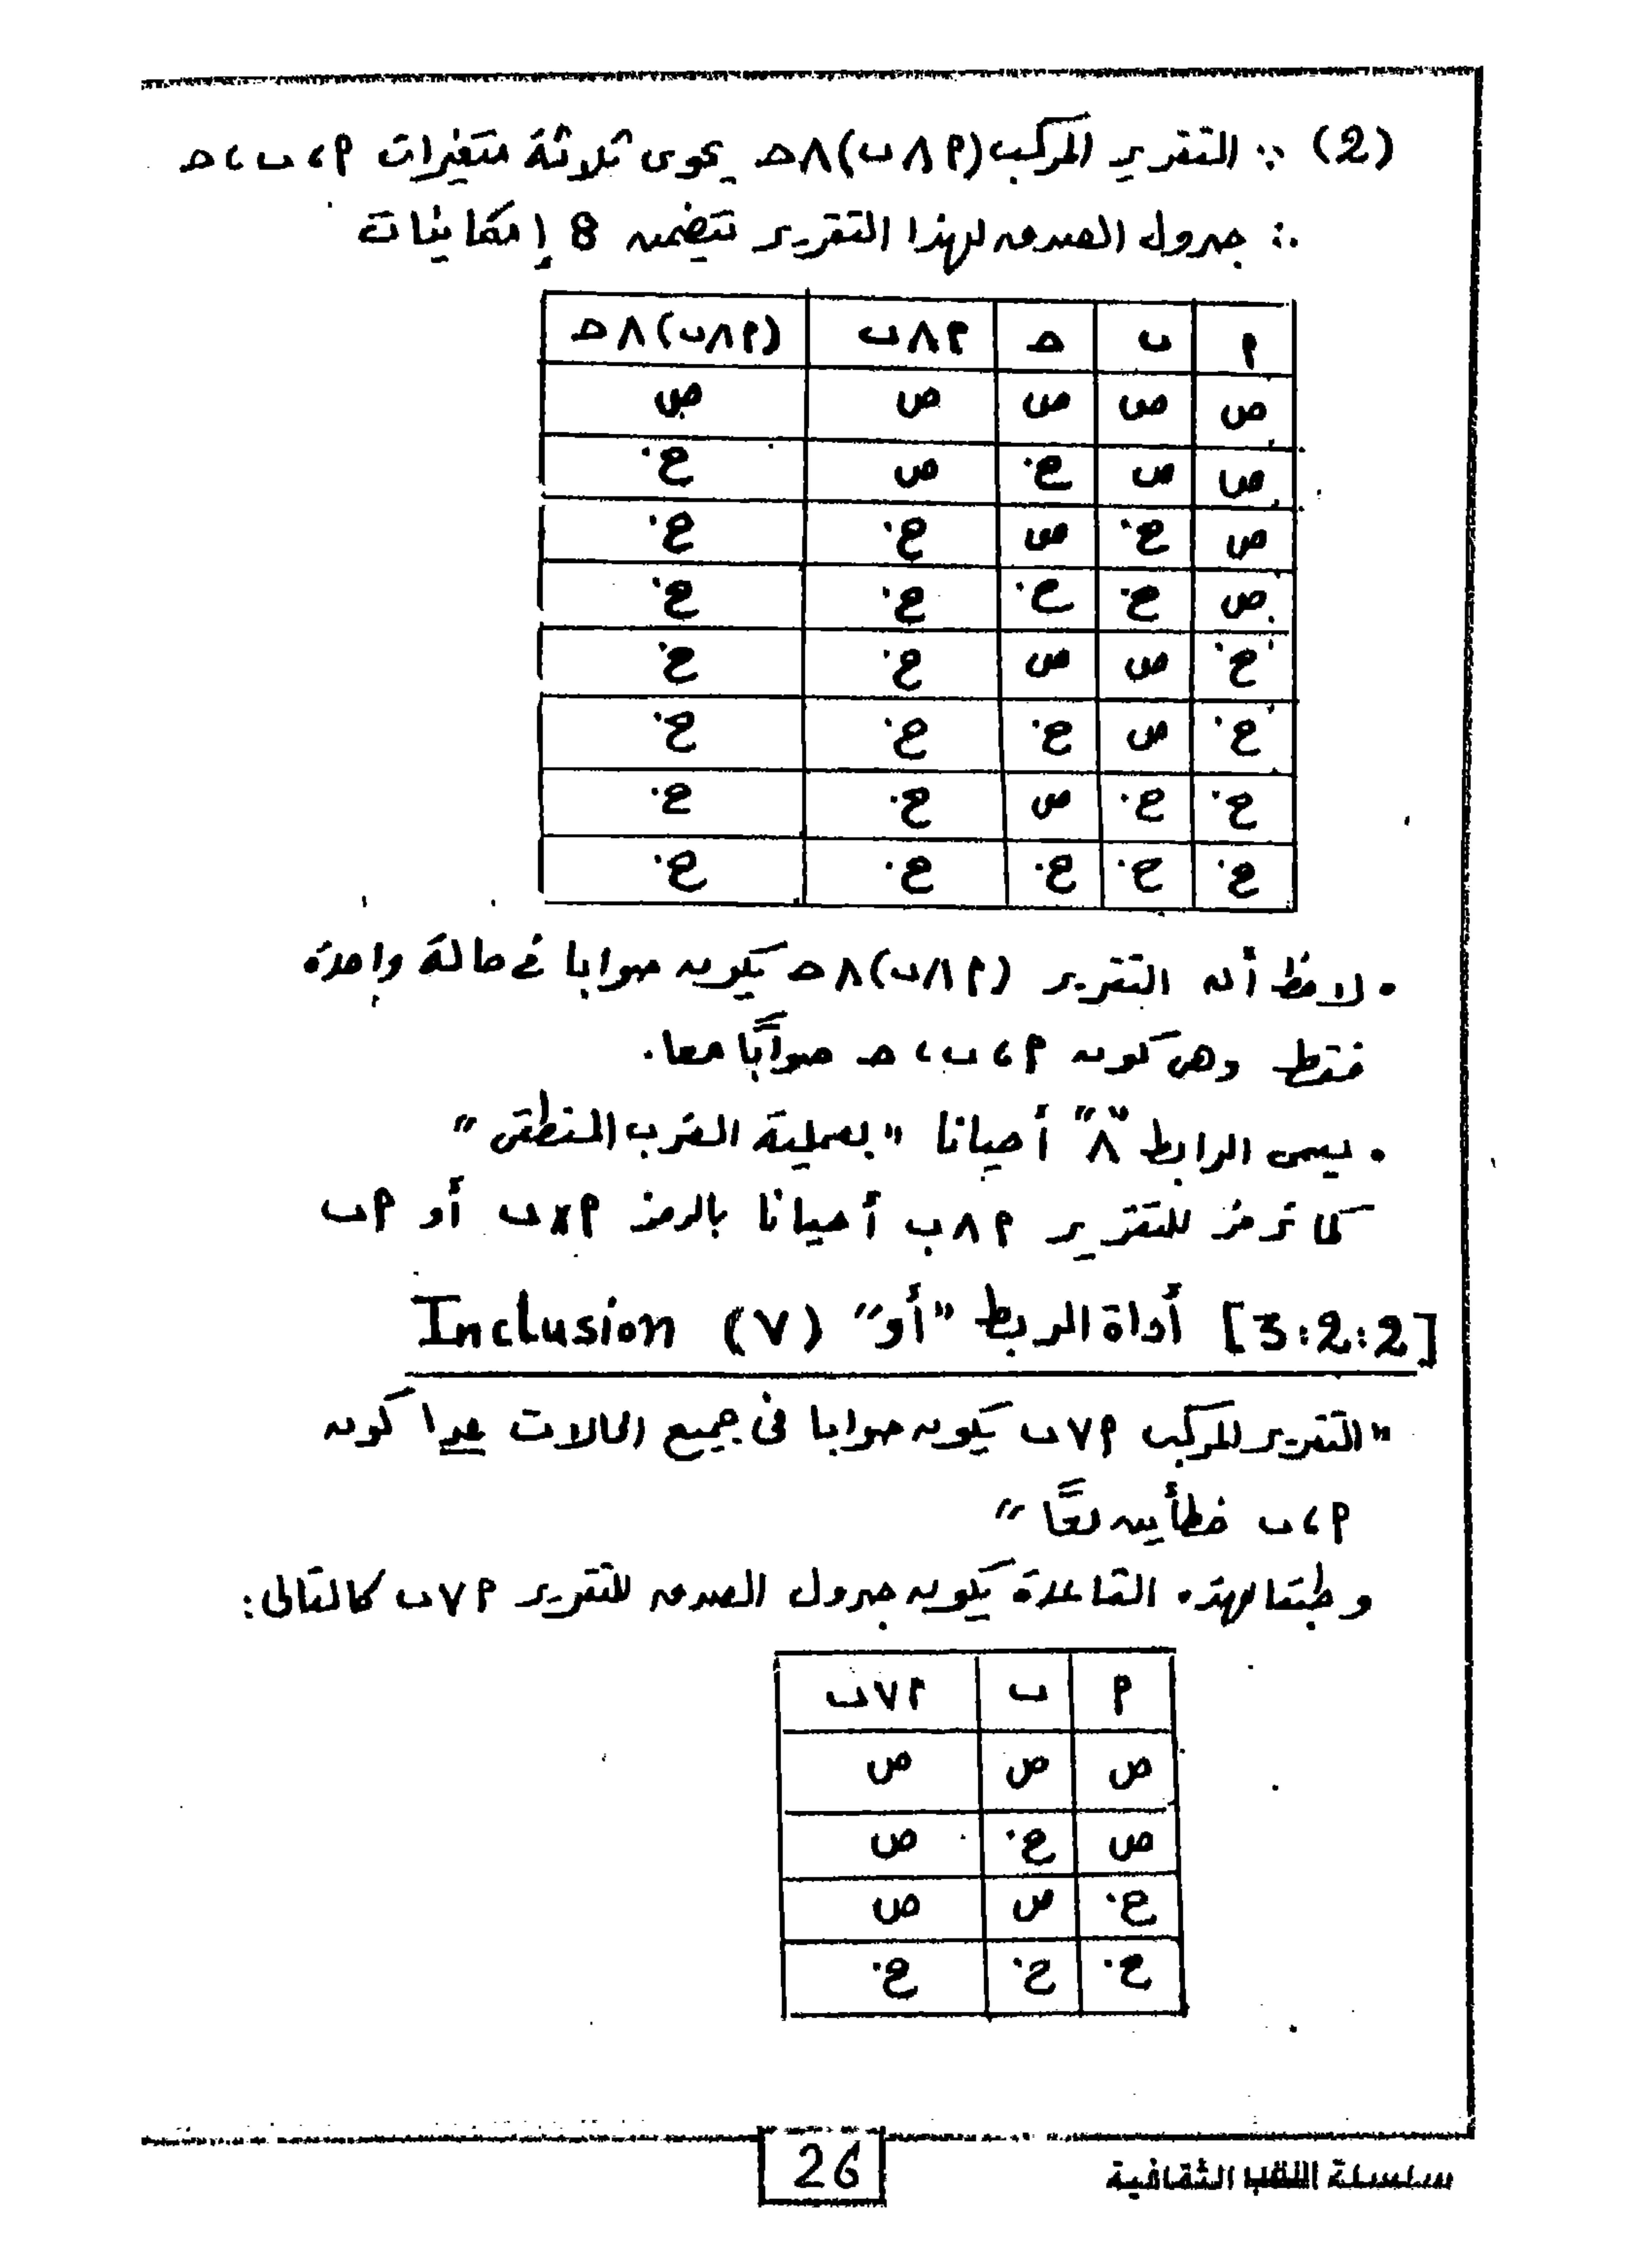 (2) ∵ التقرير المركب (م ∧ ب) ∧ حـ يحوى ثلاثة متغيرات م ، ب ، حـ
∴ جدول الصدق لهذا التقرير تتضمن 8 إمكانيات
م ب حـ م ∧ ب (م ∧ ب) ∧ حـ
ص ص ص ص ص
ص ص خ ص خ
ص خ ص خ خ
ص خ خ خ خ
خ ص ص خ خ
خ ص خ خ خ
خ خ ص خ خ
خ خ خ خ خ
• لاحظ أن التقرير (م ∧ ب) ∧ حـ يكون صوابا فى حالة واحدة
فقط وهى كون م ، ب ، حـ صوابًا معا.
• يسمى الرابط "∧" أحيانا "بعملية الضرب المنطقى"
كما ترمز للتقرير م ∧ ب أحيانا بالرمز م × ب أو م ب
[3:2:2] أداة الربط "أو" (∨) Inclusion
"التقرير المركب م ∨ ب يكون صوابا فى جميع الحالات عدا كون
م ، ب خطأين معًا"
وطبقا لهذه القاعدة يكون جدول الصدق للتقرير م ∨ ب كالتالى:
م ب م ∨ ب
ص ص ص
ص خ ص
خ ص ص
خ خ خ
26
سلسلة الثقافية